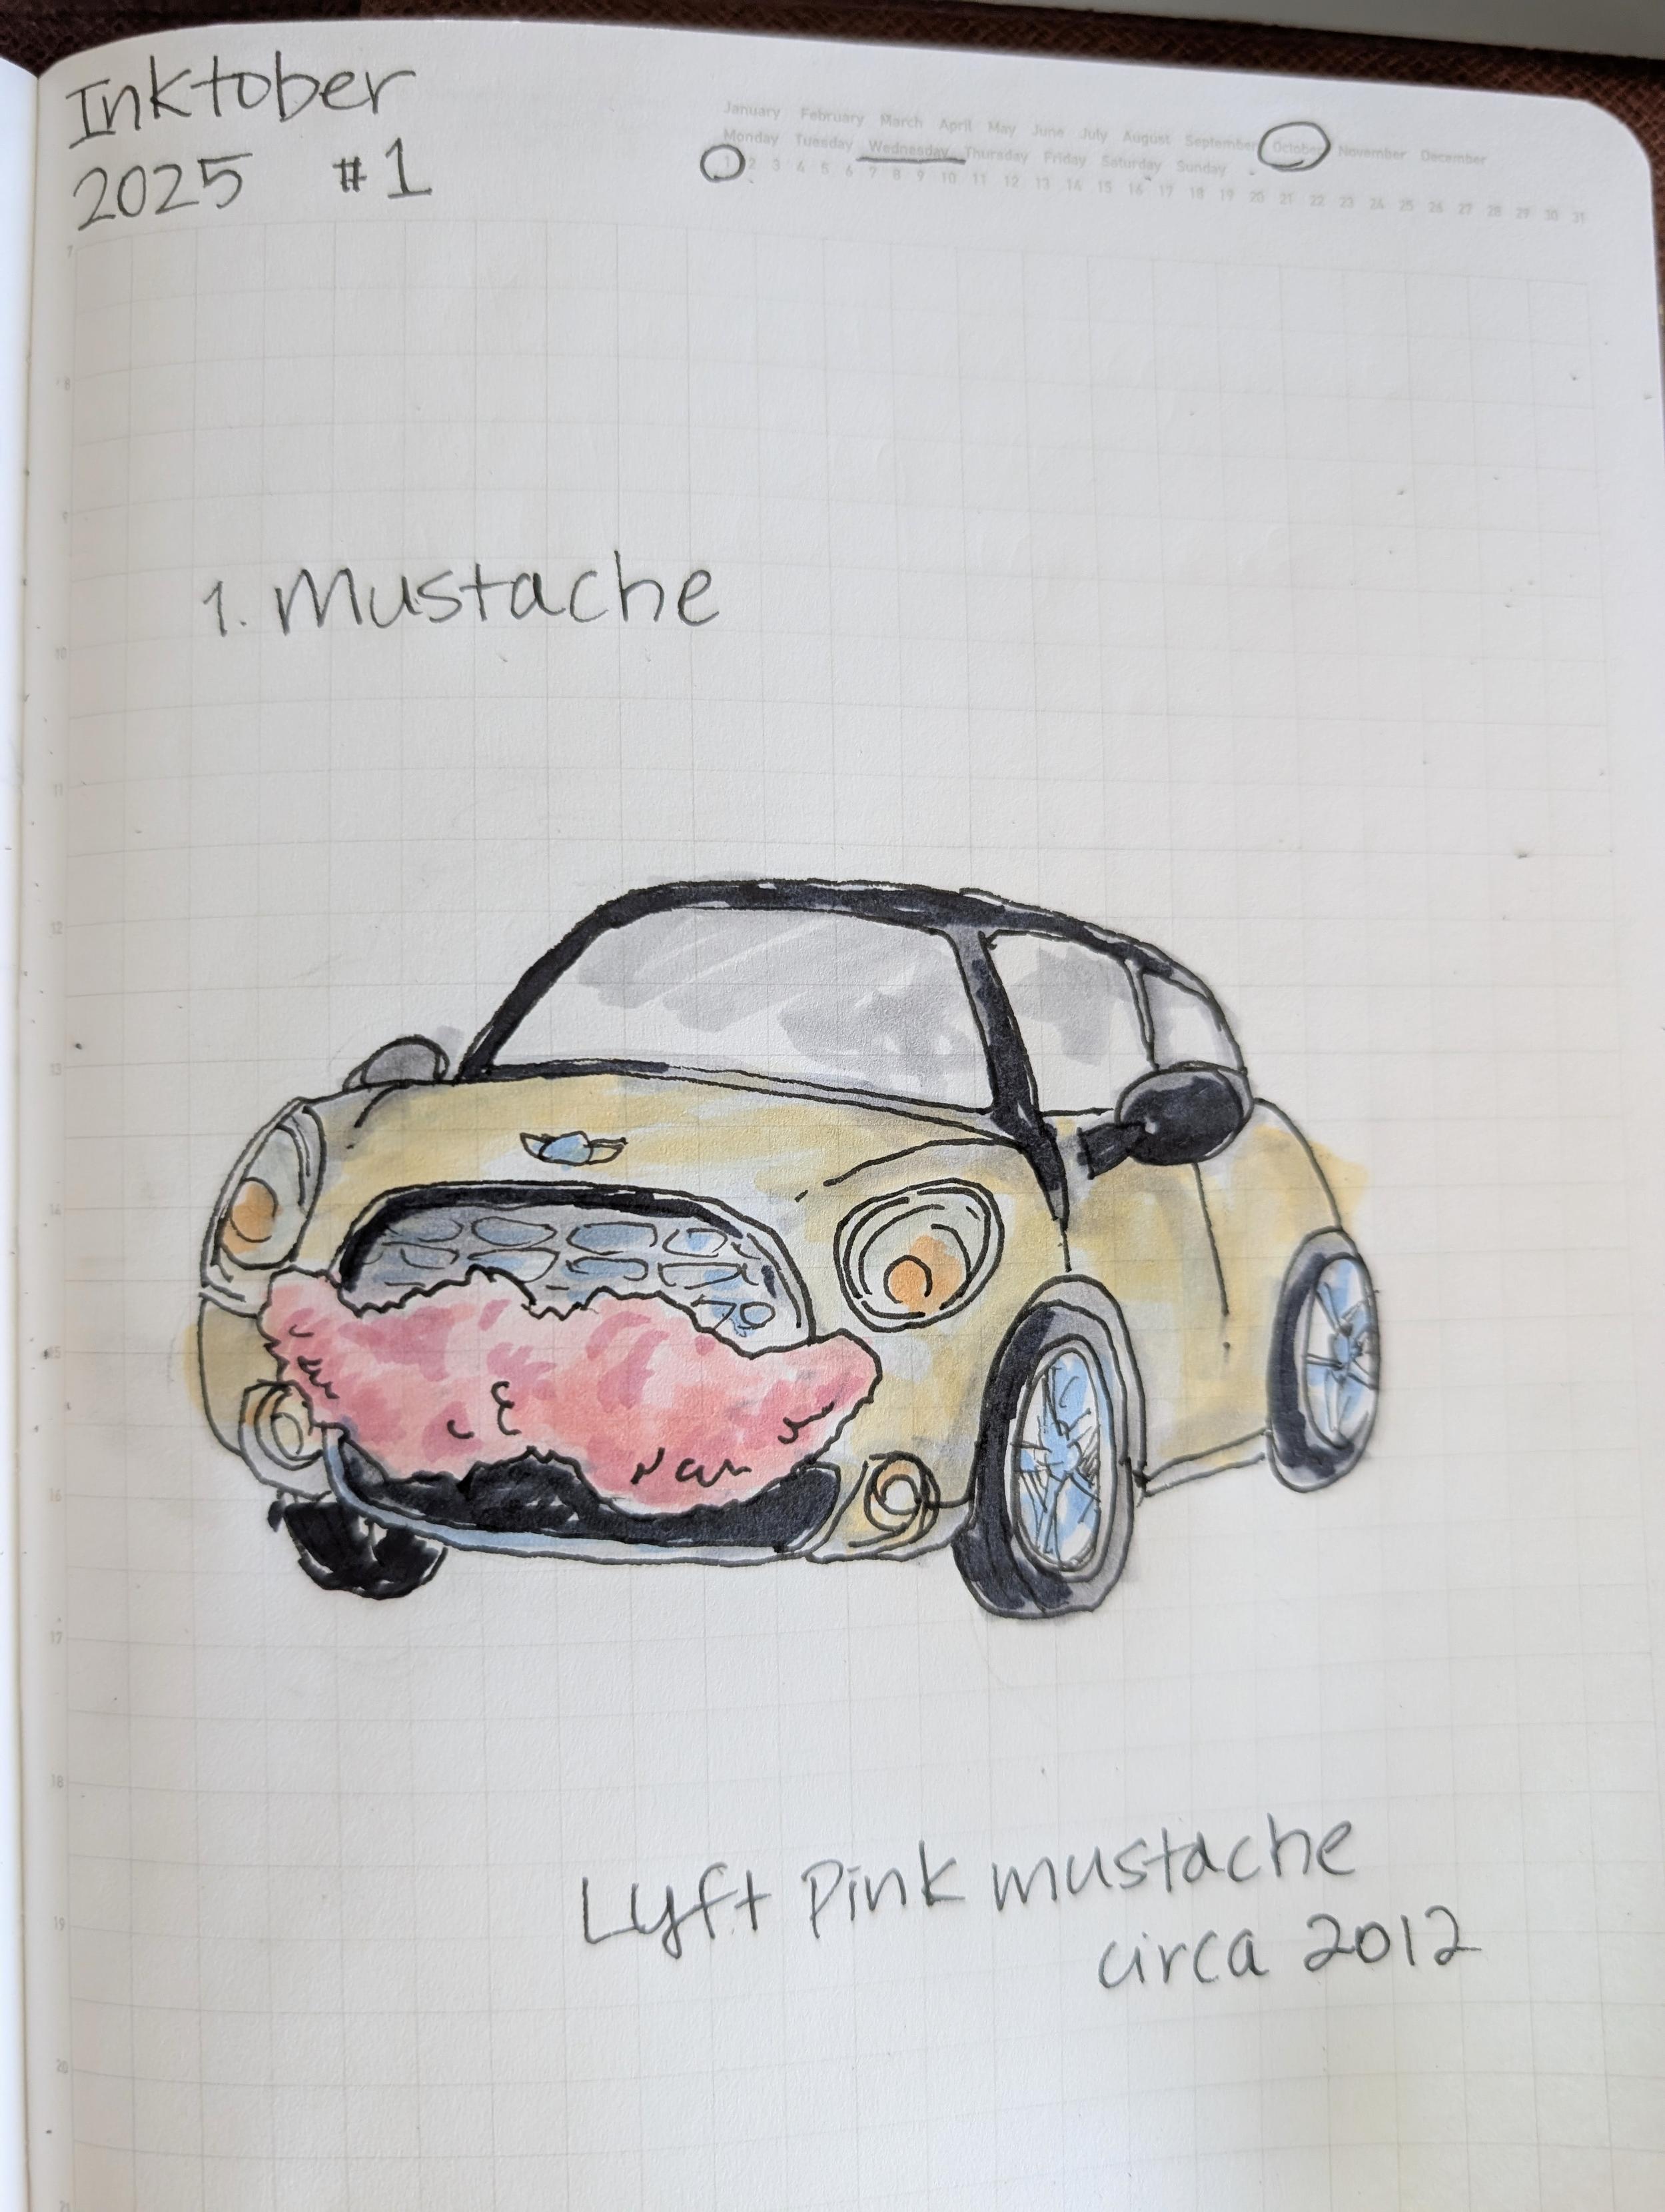 Inktober
2025 #1
January February March April May June July August September October November December
Monday Tuesday Wednesday Thursday Friday Saturday Sunday
1 2 3 4 5 6 7 8 9 10 11 12 13 14 15 16 17 18 19 20 21 22 23 24 25 26 27 28 29 30 31
7
8
9
1. Mustache
10
11
12
13
14
15
16
17
18
Lyft Pink mustache
circa 2012
19
20
21